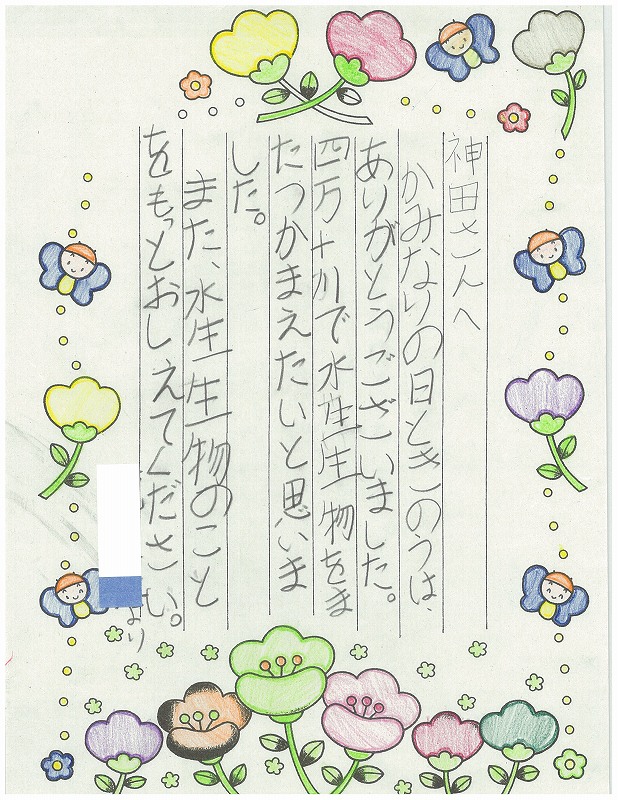 神田さんへ
かみなりの日ときのうは、
ありがとうございました。
四万十川で水生生物をま
たつかまえたいと思いま
した。
また、水生生物のこと
をもっとおしえてください。
より